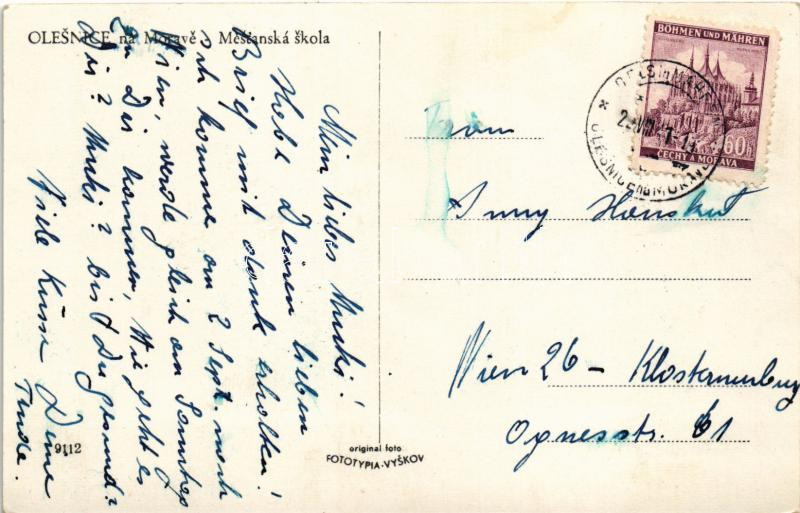 OLEŠNICE na Moravě Měšťanská škola
Mein liebes Muki!
Habe Deinen lieben
Brief mit dank erhalten!
Ich komme am 2 Sept. nach
Wien, werde gleich am Sonntag
zu Dir kommen, Wie geht es
Dir? Muki? bist Du gesund?
Viele Küsse Deine
9112
original foto
FOTOTYPIA-VYŠKOV
BÖHMEN UND MÄHREN
60h
ČECHY A MORAVA
OELS in MÄHR
OLEŠNICE na MORAVĚ
Wien 26 - Klosterneuburg
Agnesstr. 61